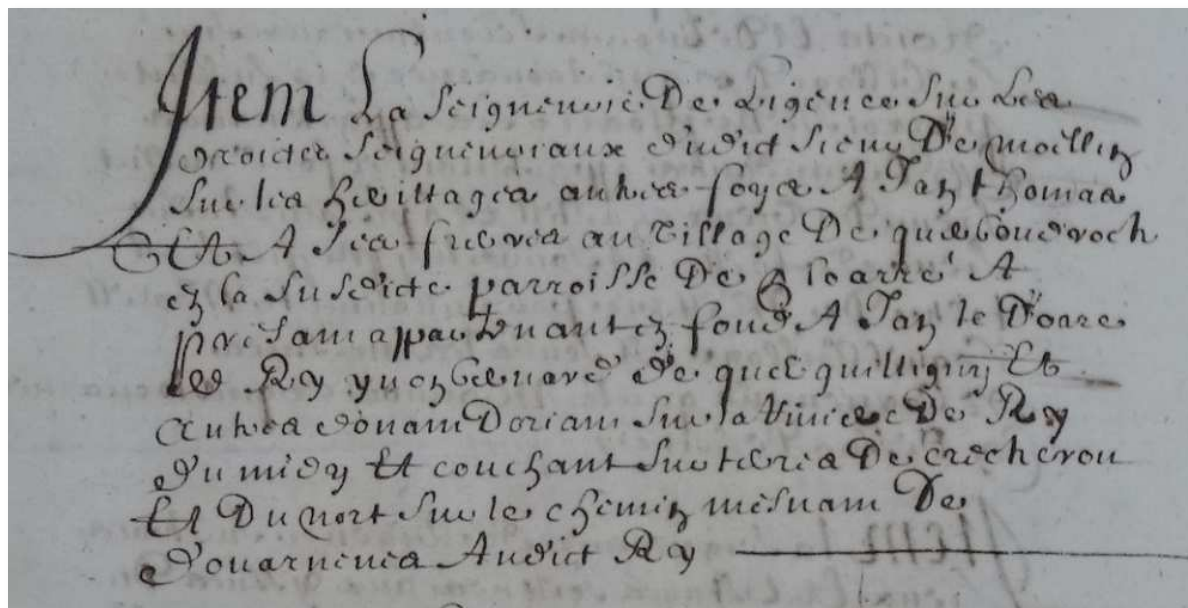 Item La seigneurie De Ligence sur Les
droictz seigneuriaux dudict sieur De moellien
sur les herittages aultres foys A Jan thomas
Et A ses freres au village De
en la susdicte parroisse De ploarré A
presant appartenant en fond A Jan le Doare
Ry yvon de Et
aultres donant Doriant sur la riviere De Ry
du midy Et couchant sur terres De crecherou
Et Du nort sur le chemin mesnant De
douarnenes Audict Ry